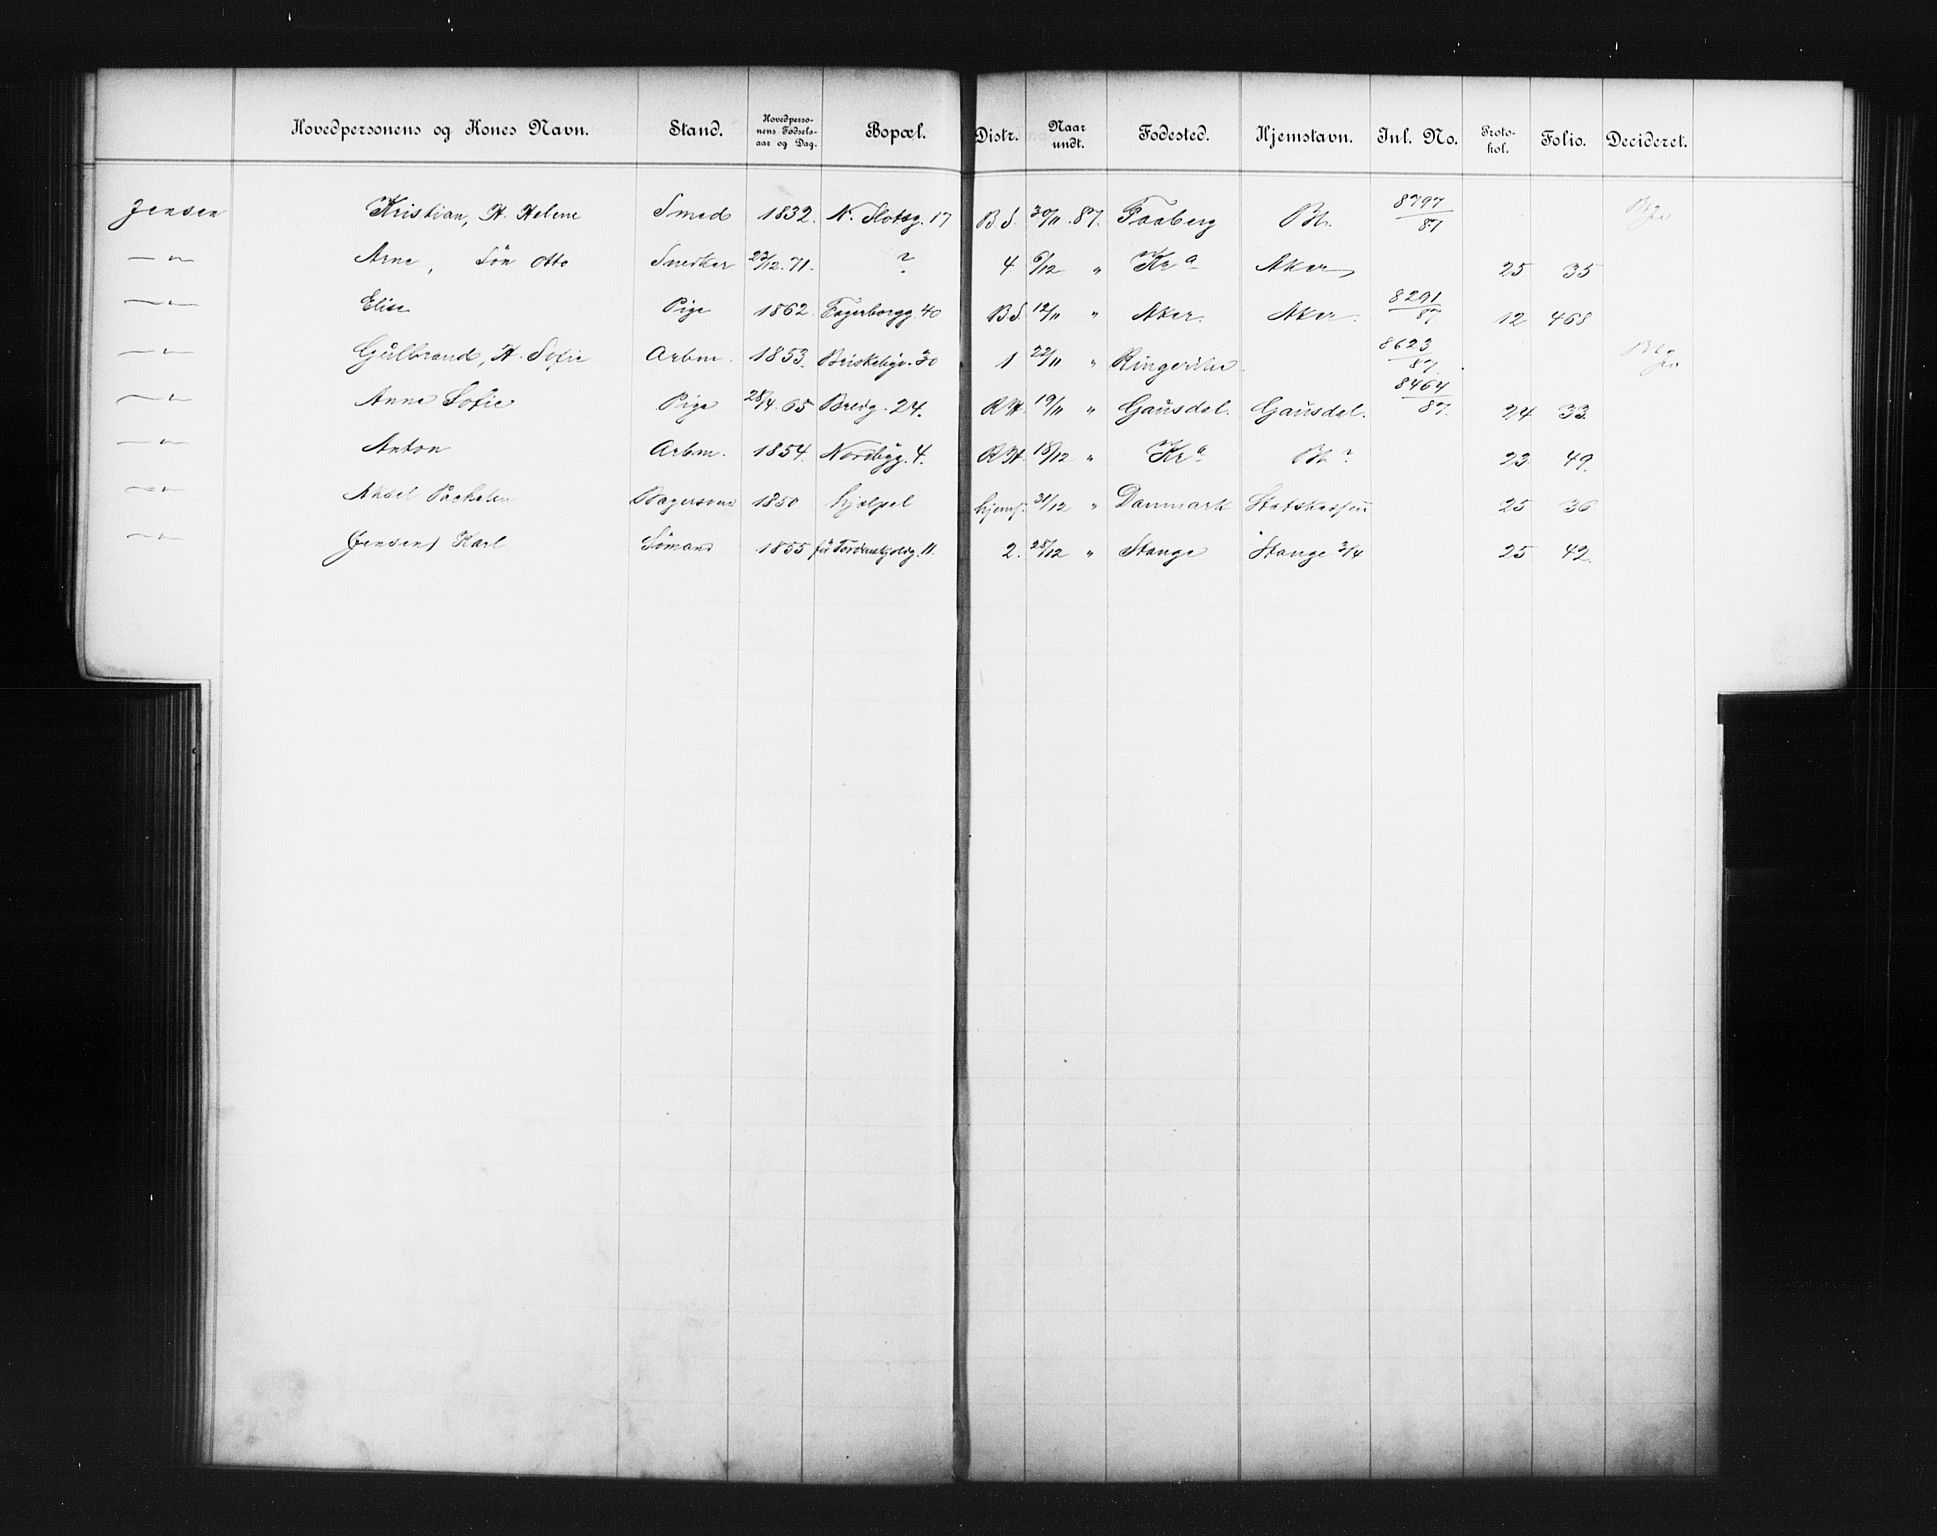 Hovedpersonens og Kones Navn. Stand. Hovedpersonens Fødselsaar og Dag. Bopæl. Distr. Naar undt. Fødested. Hjemstavn. Inl. No. Protokol. Folio. Decideret.
Jensen Kristian, H. Helene Smed 1832. N. Slotsg. 17 B.S. 30/11 87. Faaberg Bh. 8797/87
—„— Arne, Søn Otto Snedker 22/12 71. ? 4 6/12 „ Kra Aker 25 35
—„— Elise Pige 1862. Fagerborgg. 40 B.S. 12/11 „ Aker. Aker. 8291/87 12 468
—„— Gulbrand, H. Sofie Arbm. 1853. Briskebyv. 30 1 22/11 „ Ringerike 8623/87.
—„— Anne Sofie Pige 28/4 65 Bredg. 24. R.H. 19/11 „ Gausdal. Gausdal. 8464/87. 24 33.
—„— Anton Arbm. 1854. Nordbyg. 4. R.H. 18/12 „ Kra Bh ? 23 49.
—„— Aksel Bagersvend 1850 hjælpsl hjemf. 31/12 „ Danmark Statskassen 25 36
—„— (Jensen) Karl Sømand 1855 Tordenskjoldg. 11. 2. 28/12 „ Stange Stange 3/4 25 42.